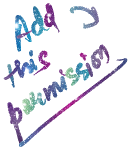 Add
this
parmission